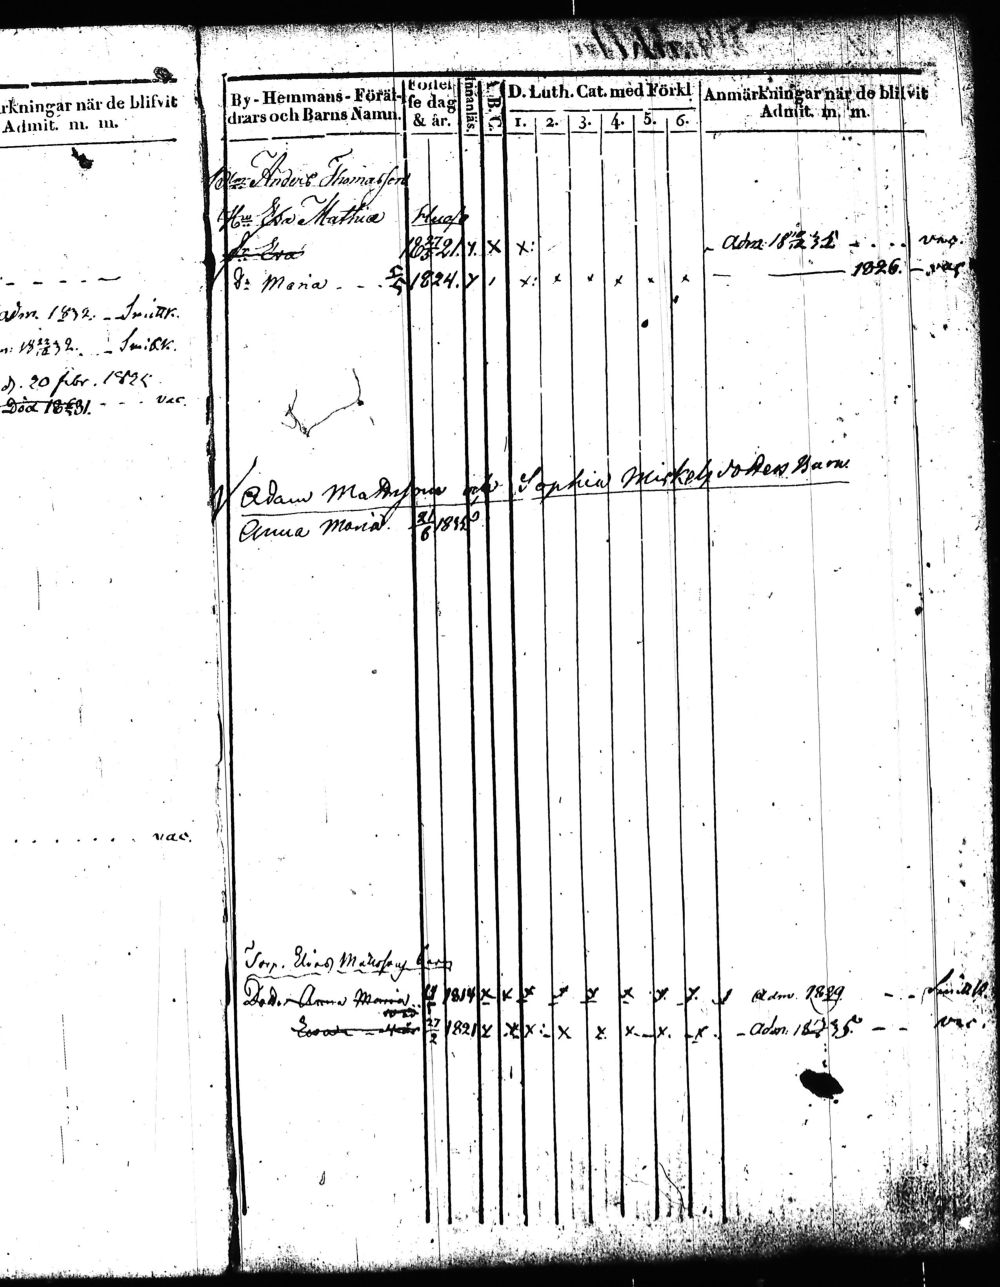 rkningar när de blifvit
Admit. m. m.
adm. 1832. Smittk.
32. Smitk.
d. 20 febr. 1825
Död 1831. vac.
vac.
By-Hemmans-Förät-
drars och Barns Namn.
Födel
se dag
& år.
Innanläs.
A.B.C.
D. Luth. Cat. med Förkl
1. 2. 3. 4. 5. 6.
Anmärkningar när de blifvit
Admit. m. m.
Anders Thomasson
Hu Eva Mathia
Dr Eva 1821. x x x: Adm. 18 vac.
dr Maria 5/5 1824. x: x x x x x 1826. vac.
Adam Mattsson och Sophia Mickelsdotters Barn
Anna Maria 21/6 1832
Torp. Elias Mattsons barn
Dotter Anna Maria 1814 x x x x x x x x adm. 1829 Smittk
Eva 27/2 1821 x x x: x x x x x Adm. 18 35 vac.